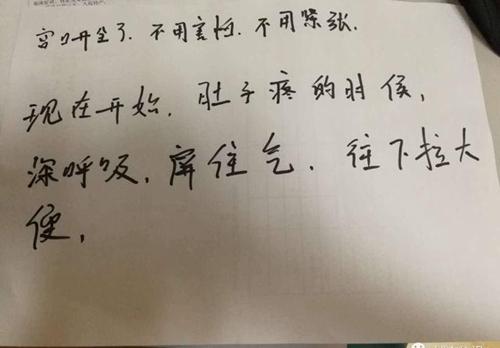 宫口开全了．不用害怕．不用紧张．
现在开始．肚子疼的时候，
深呼吸．屏住气．往下拉大
便，